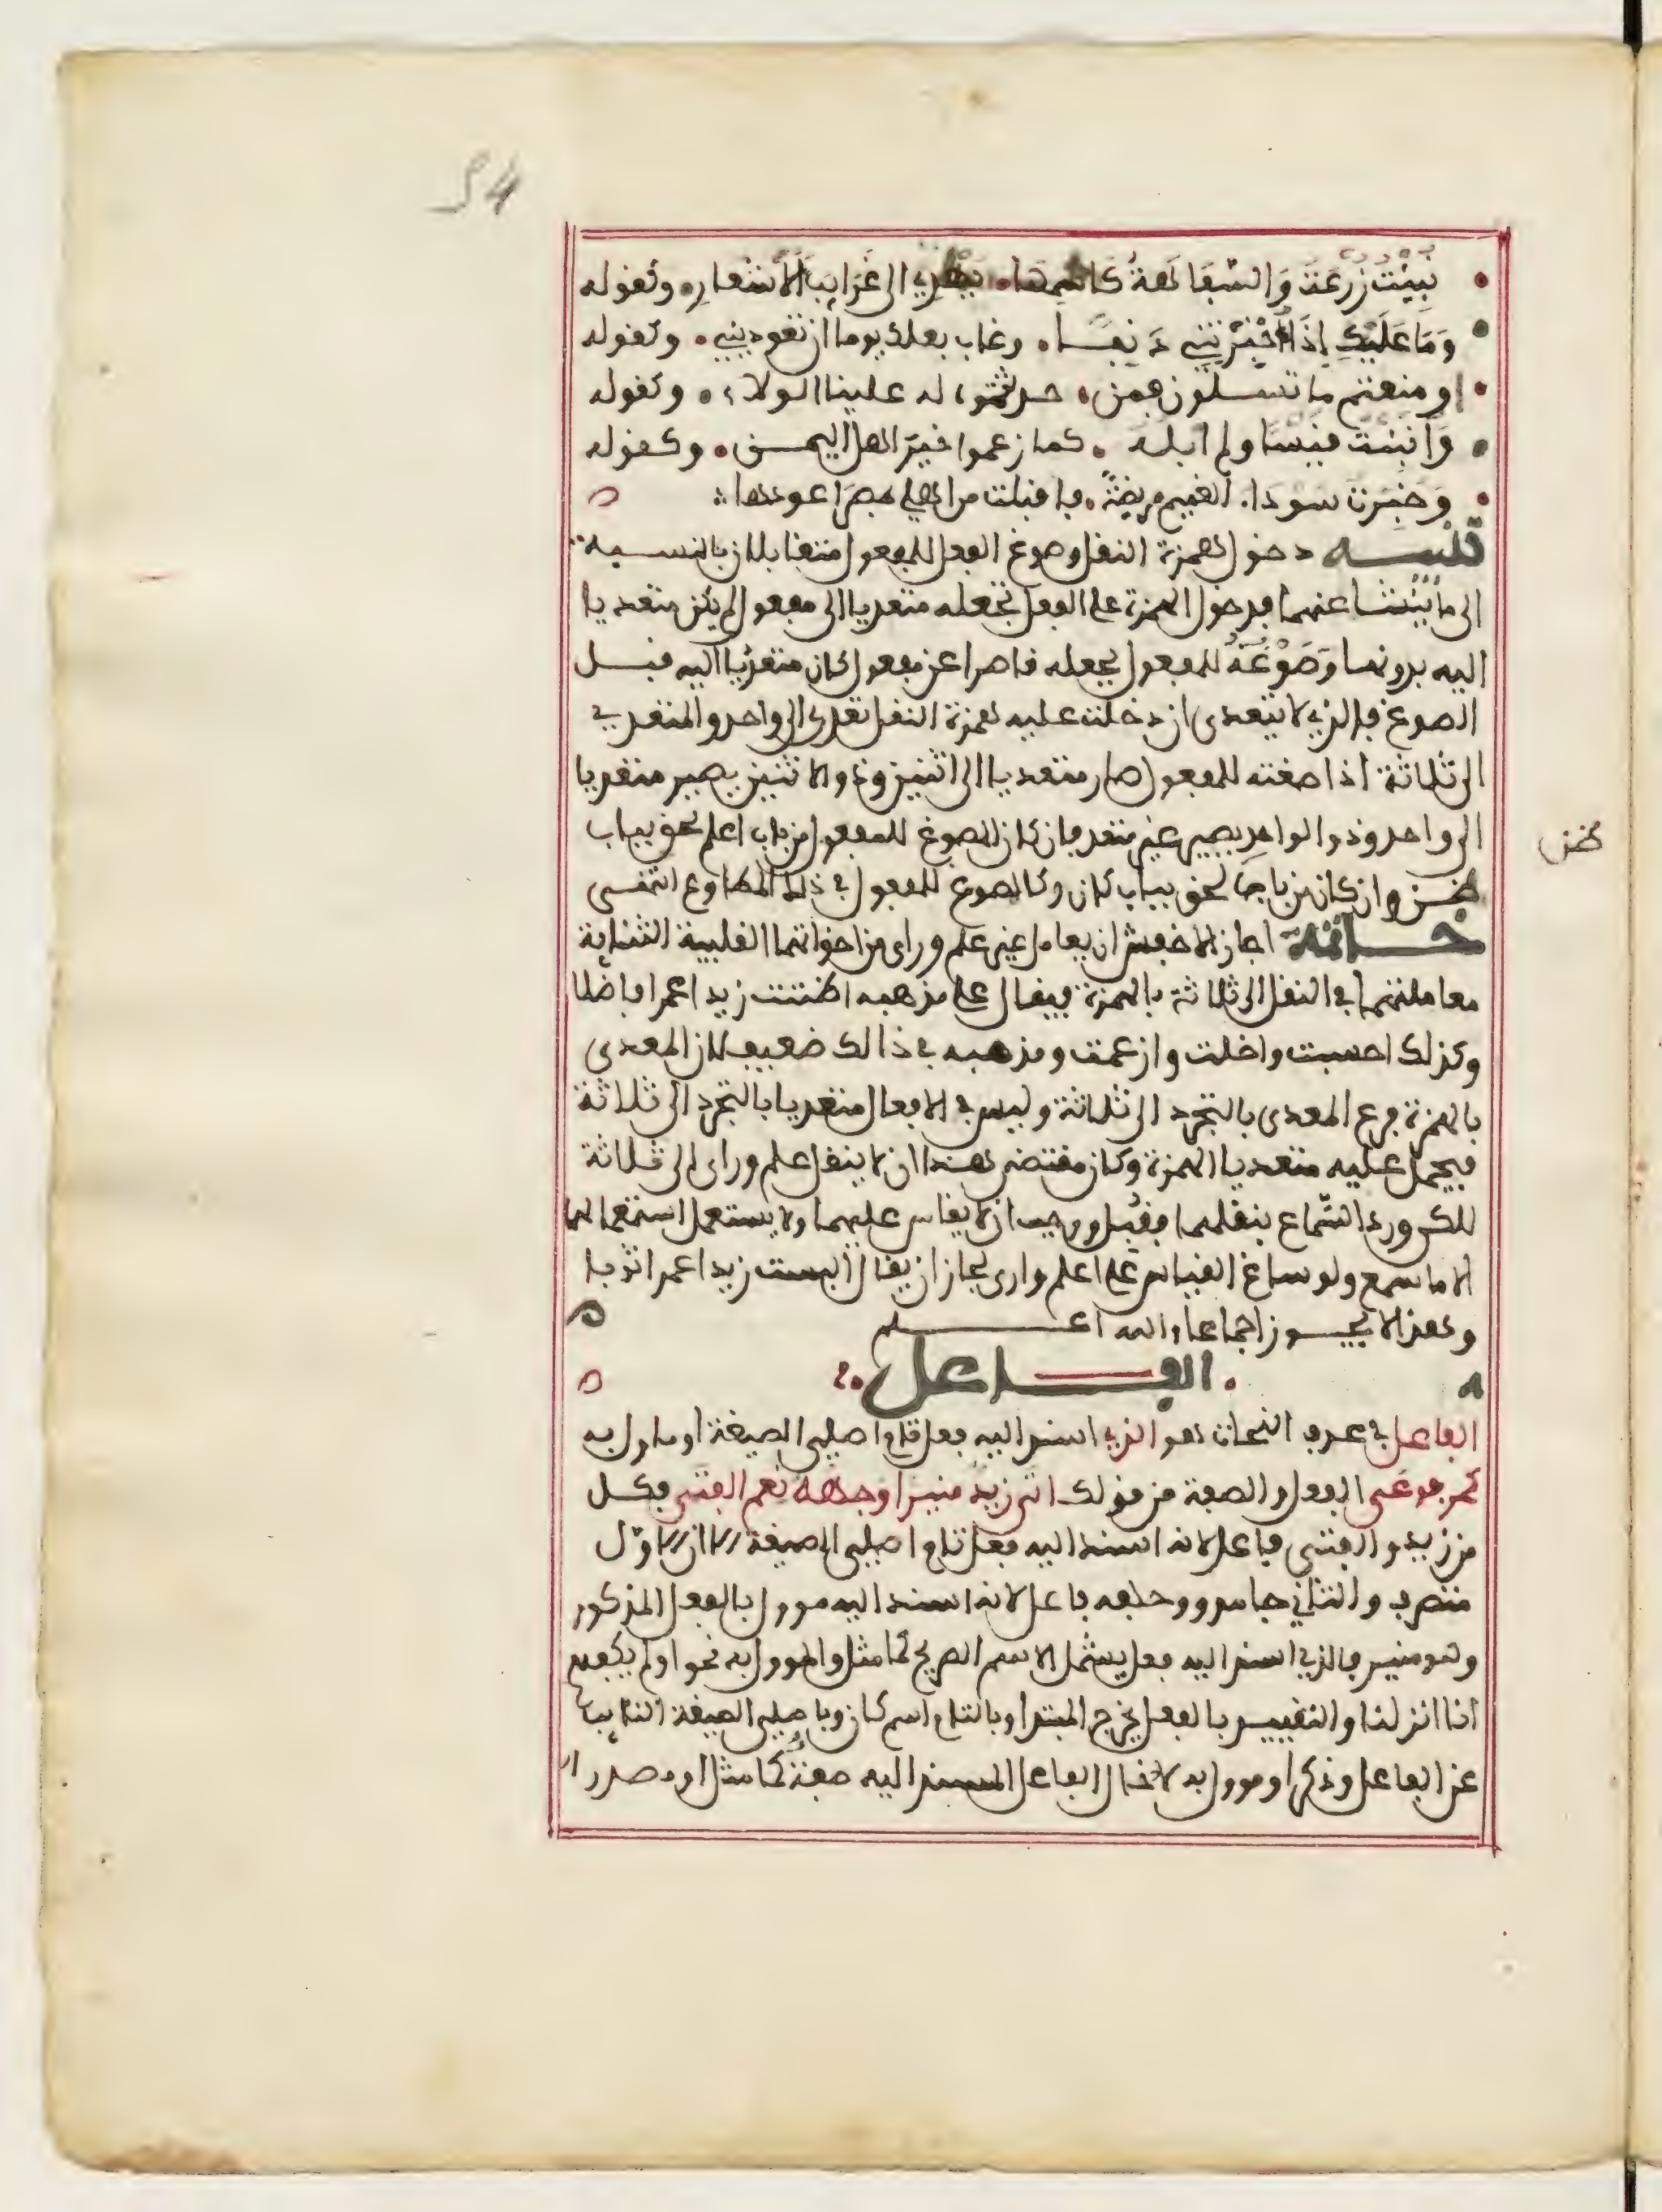 54
نُبِّئْتُ زُرْعَةَ وَالسَّفَاهَةُ كَاسْمِهَا • يُهْدِي الى غَرَايِبَ الأشْعارِ • وكقوله
وَمَا عَلَيْكِ إِذَا أُخْبِرْتِنِي دَنِفًا • وغاب بعلك يوما ان تعوديني • وكقوله
او منعتم ما تسئلون فمن • حدثتموه له علينا الولاء • وكقوله
وَأُنْبِئْتُ قَيْسًا ولم ابله • كما زعموا خير اهل اليمن • وكقوله
وَخُبِّرْتُ سوداء الغميم مريضة • فاقبلت من اهلي بمصر اعودها
تنبيه دخول همزة النقل وصوغ الفعل للمفعول متقابلان بالنسبة
الى ما يَنْشأ عنهما فدخول الهمزة على الفعل تجعله متعديا الى مفعول لم يكن متعديا
اليه بدونها وَصَوْغُهُ للمفعول يجعله قاصرا عن مفعول كان متعديا اليه قبل
الصوغ فالذي لا يتعدى ان دخلت عليه همزة النقل تعدى الى واحد والمتعدي
الى ثلاثة اذا صغته للمفعول صار متعديا الى اثنين وذو الاثنين يصير متعديا
الى واحد وذو الواحِدِ يصير غير متعد فان كان المصوغ للمفعول من باب اعلم لحق بباب
ظن
ظن وان كان من بابها لحق بباب كان وكالمصوغ للمفعول في ذلك المطاوع انتهى
خاتمة اجاز الاخفش ان يعامل غير علم وراى من اخواتهما القلبية الثلاثية
معاملتهما في النقل الى ثلاثة بالهمزة فيقال على مذهبه اظننت زيدا عمرا فاضلا
وكذلك احسبت واخلت وازعمت ومذهبه في ذالك ضعيف لان المعدى
بالهمزة فرع المعدى بالتجرد الى ثلاثة وليس في الافعال متعديا بالتجرد الى ثلاثة
فيحمل عليه متعديا الهمزة وكان مقتضى هذا ان لا ينقل علم وراى الى ثلاثة
لكن ورد السّماع بنقلهما فقُبل ووجب ان لا يقاس عليهما ولا يستعمل استعمالهما
الا ما سمع ولو ساغ القياس على اعلم وارى لجاز ان يقال البست زيدا عمرا ثوبا
وهذا لا يجوز اجماعا والله اعلم
الفاعل
الفاعل في عرف النحات هو الذي اسند اليه فعل تام اصلي الصيغة او ماول به
كمرفوعي الفعل والصفة من قولك اتى زيد منيرا وجهه نعم الفتى فكل
من زيد والفتى فاعل لانه اسند اليه فعل تام اصلي الصيغة الا ان الاوّل
متصرف والثاني جامد ووجهه فاعل لانه اسند اليه موول بالفعل المذكور
وهو منير فالذي اسند اليه فعل يشمل الاسم الصريح كما مثل والموول به نحو اولم يكفهم
انا انزلنا والتقييد بالفعل يخرج المبتدا وبالتام اسم كان وباصلي الصيغة النايب
عن الفاعل وذكر او موول به لادخال الفاعل المسند اليه صفة كما مثل او مصدر